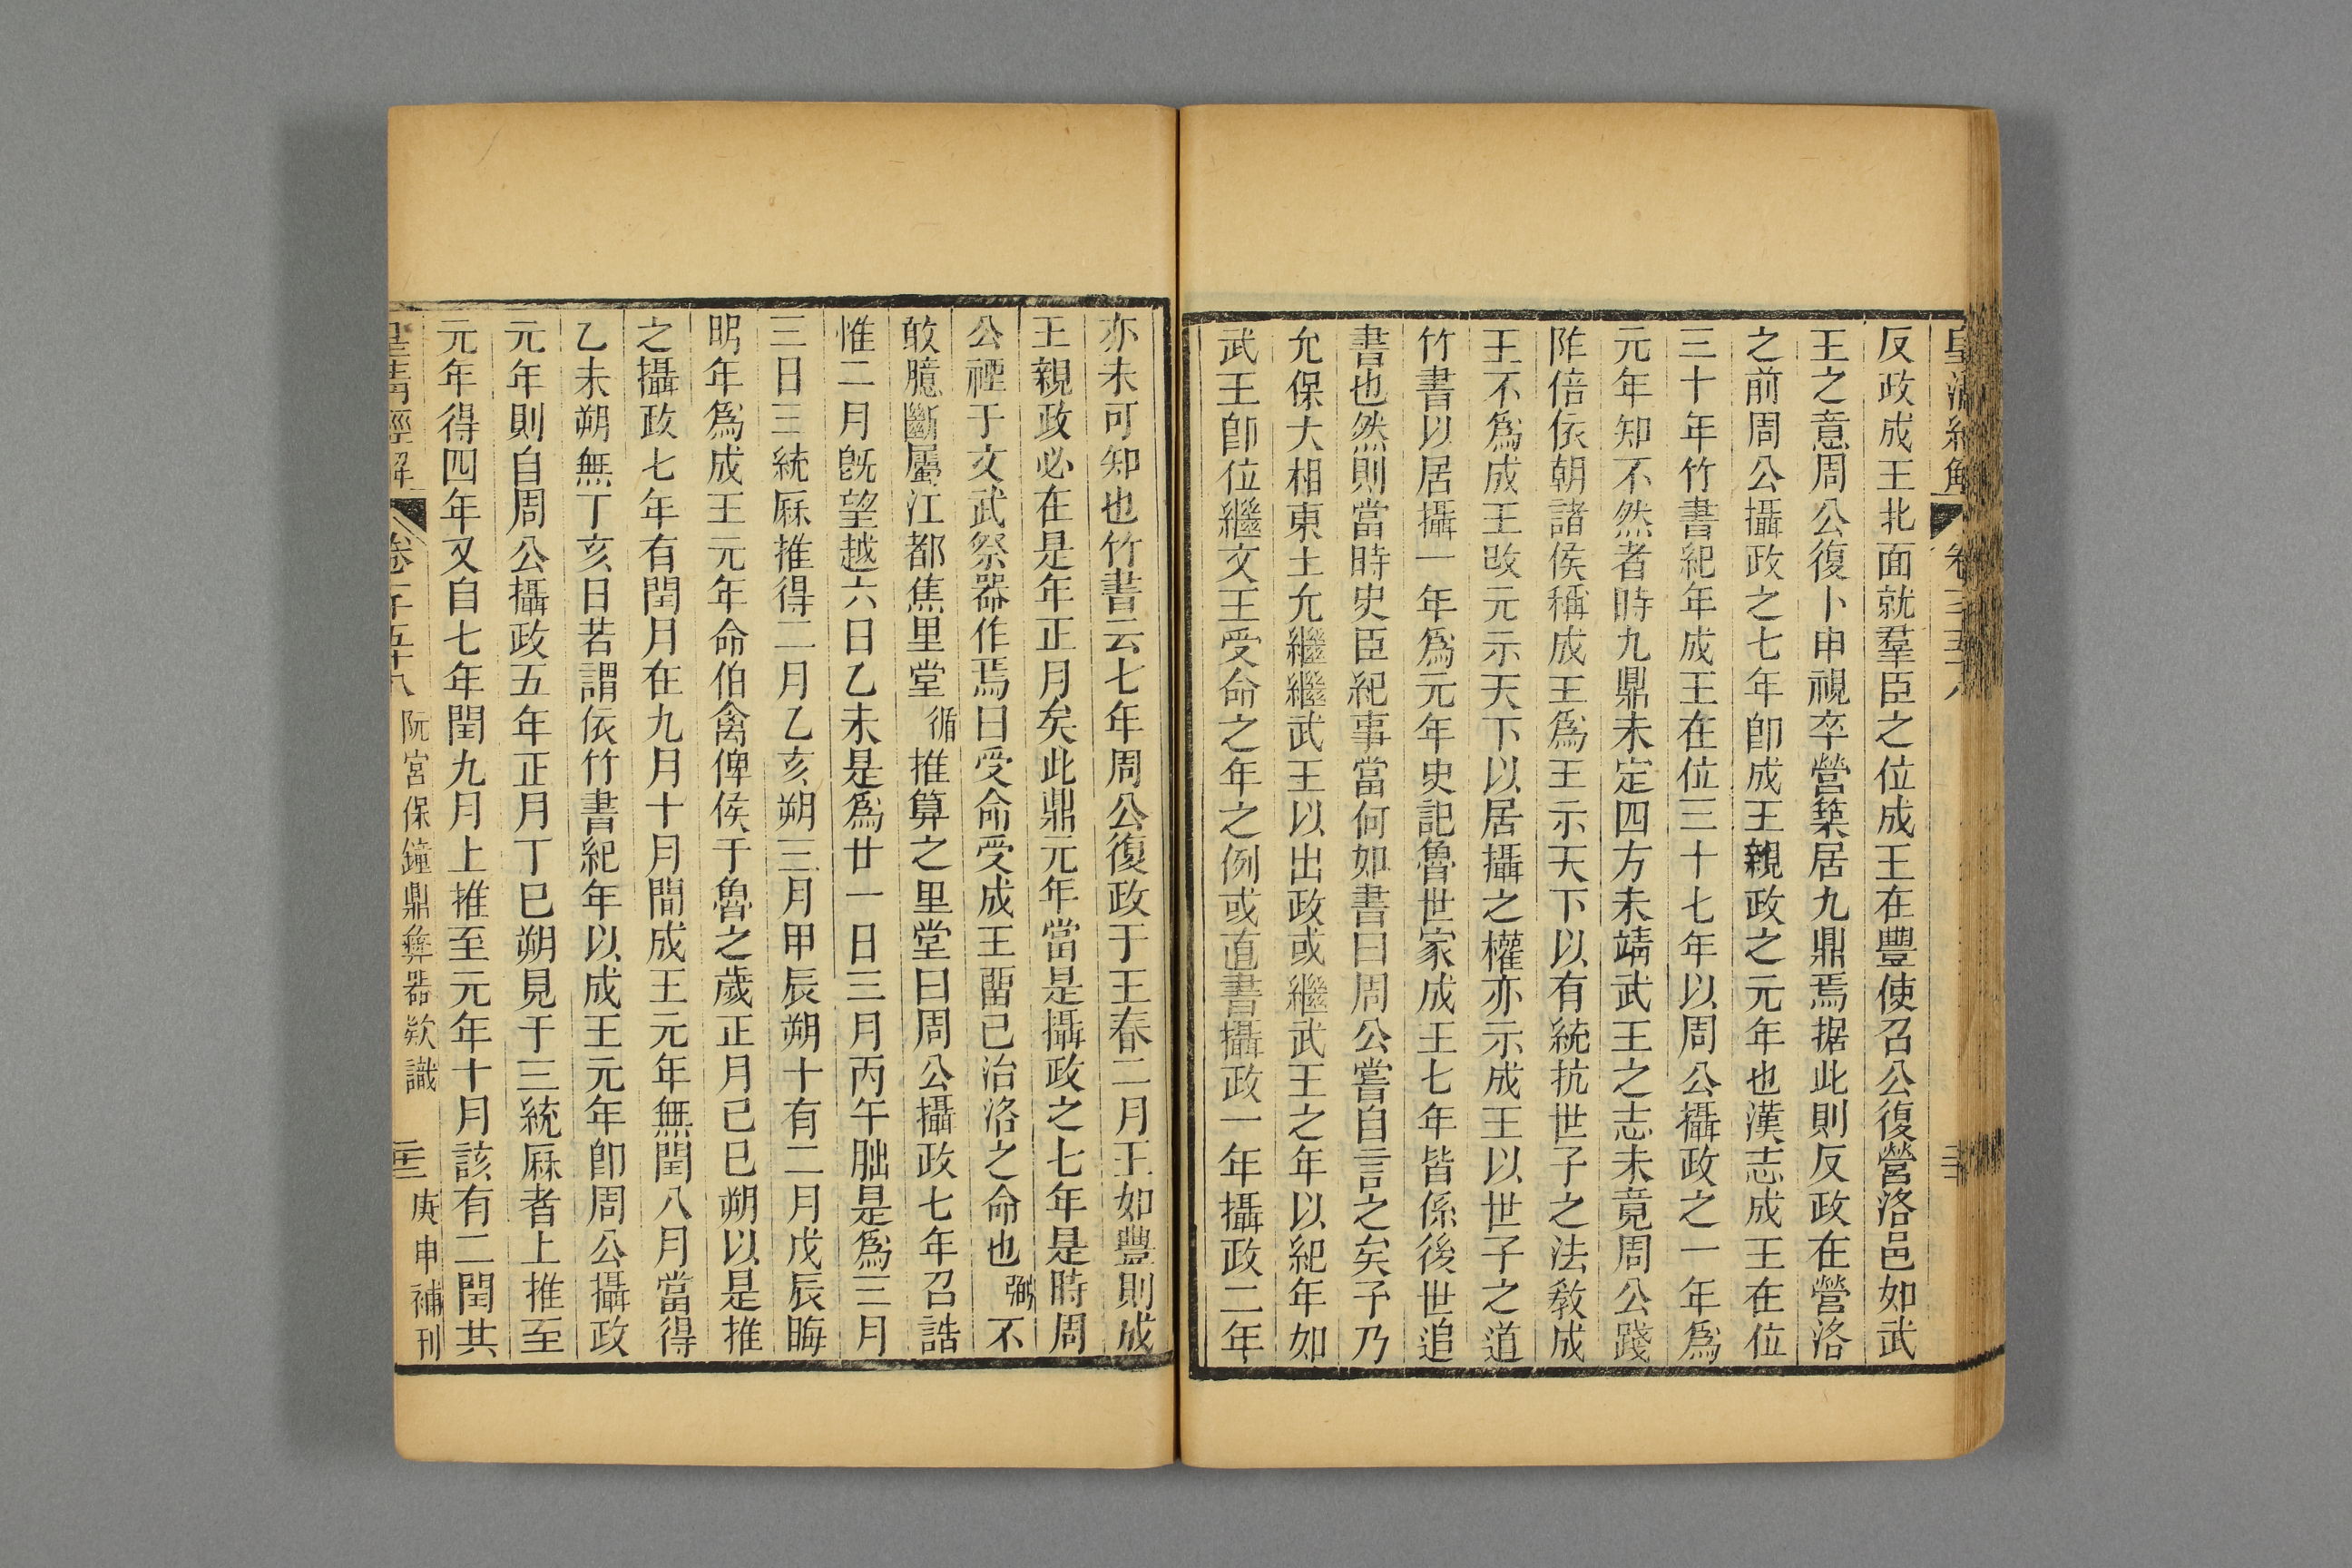 反政成王北面就羣臣之位成王在豐使召公復營洛邑如武
王之意周公復卜申視卒營築居九鼎焉据此則反政在營洛
之前周公攝政之七年卽成王親政之元年也漢志成王在位
三十年竹書紀年成王在位三十七年以周公攝政之一年爲
元年知不然者時九鼎未定四方未靖武王之志未竟周公踐
阼倍依朝諸侯稱成王爲王示天下以有統抗世子之法敎成
王不爲成王改元示天下以居攝之權亦示成王以世子之道
竹書以居攝一年爲元年史記魯世家成王七年皆係後世追
書也然則當時史臣紀事當何如書曰周公嘗自言之矣予乃
允保大相東土允繼繼武王以出政或繼武王之年以紀年如
武王卽位繼文王受命之年之例或直書攝政一年攝政二年
亦未可知也竹書云七年周公復政于王春二月王如豐則成
王親政必在是年正月矣此鼎元年當是攝政之七年是時周
公禋于文武祭器作焉曰受命受成王畱已治洛之命也弼不
敢臆斷屬江都焦里堂循推算之里堂曰周公攝政七年召誥
惟二月旣望越六日乙未是爲廿一日三月丙午朏是爲三月
三日三統厤推得二月乙亥朔三月甲辰朔十有二月戊辰晦
明年爲成王元年命伯禽俾侯于魯之歲正月己巳朔以是推
之攝政七年有閏月在九月十月間成王元年無閏八月當得
乙未朔無丁亥日若謂依竹書紀年以成王元年卽周公攝政
元年則自周公攝政五年正月丁巳朔見于三統厤者上推至
元年得四年又自七年閏九月上推至元年十月該有二閏共
皇清經解 卷一千五十八 阮宮保鐘鼎彝器欵識 庚申補刊